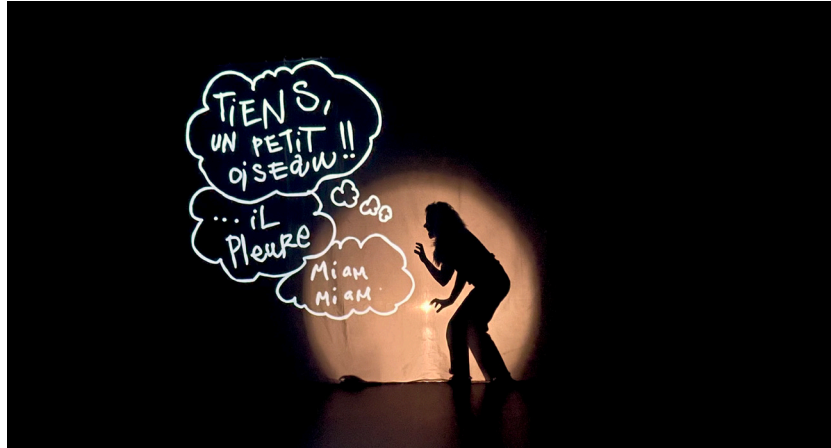 TiENS,
UN PETiT
OiSEaU !!
... iL
PleuRe
Miam
miam.